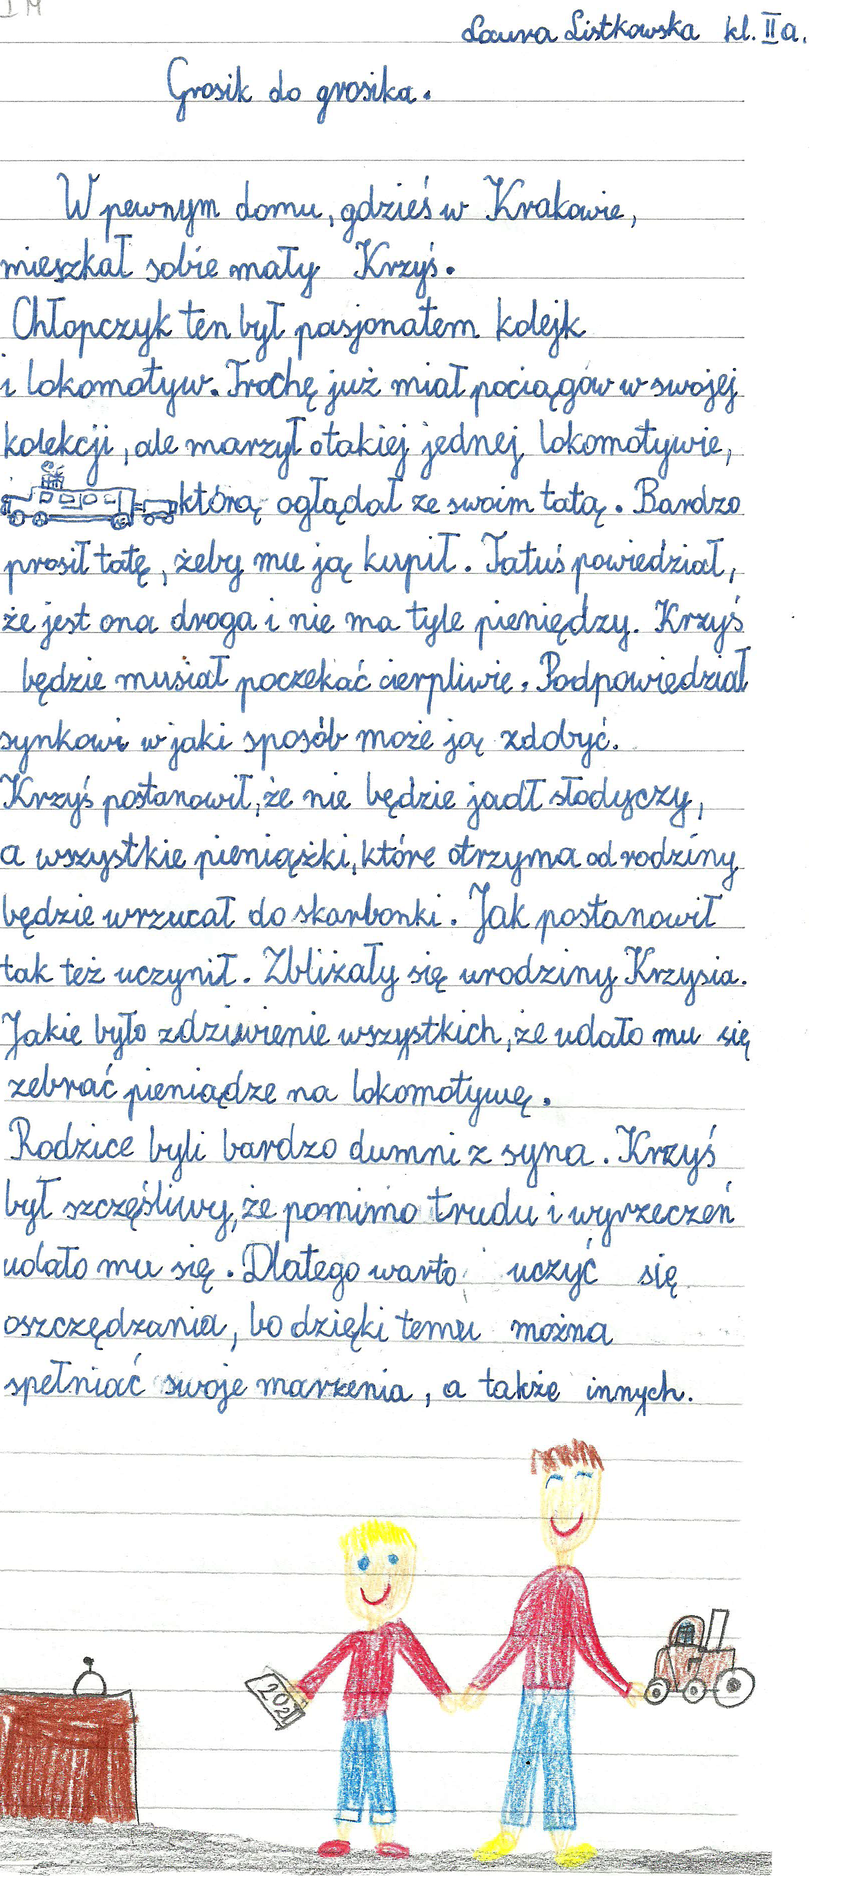 I M
Laura Listkowska kl. II a.
Grosik do grosika.
W pewnym domu, gdzieś w Krakowie,
mieszkał sobie mały Krzyś.
Chłopczyk ten był pasjonatem kolejk
i lokomotyw. Trochę już miał pociągów w swojej
kolekcji, ale marzył o takiej jednej lokomotywie,
którą oglądał ze swoim tatą. Bardzo
prosił tatę, żeby mu ją kupił. Tatuś powiedział,
że jest ona droga i nie ma tyle pieniędzy. Krzyś
będzie musiał poczekać cierpliwie. Podpowiedział
synkowi w jaki sposób może ją zdobyć.
Krzyś postanowił, że nie będzie jadł słodyczy,
a wszystkie pieniążki, które otrzyma od rodziny
będzie wrzucał do skarbonki. Jak postanowił
tak też uczynił. Zbliżały się urodziny Krzysia.
Jakie było zdziwienie wszystkich, że udało mu się
zebrać pieniądze na lokomotywę.
Rodzice byli bardzo dumni z syna. Krzyś
był szczęśliwy, że pomimo trudu i wyrzeczeń
udało mu się. Dlatego warto uczyć się
oszczędzania, bo dzięki temu można
spełniać swoje marzenia, a także innych.